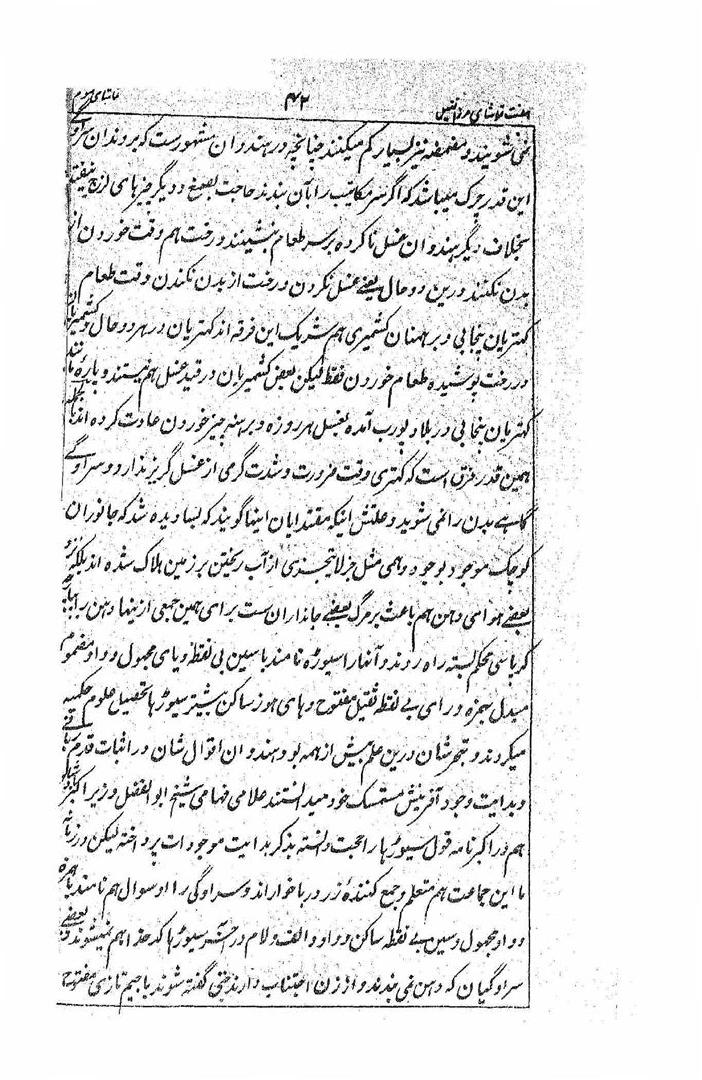 هفت تماشای مرزا قتیل ۴۲ تماشای سوم
نمی شویند و مضمضه نیز بسیار کم میکنند چنانچه در هندوان مشهورست که بر دندان سراوگی
این قدر چرک میباشد که اگر سر مکاتیب را بآن بندند حاجت بصمغ و دیگر چیزهای لزج نیفتد
بخلاف دیگر هندوان غسل ناکرده بر سر طعام بنشینند و رخت هم وقت خوردن از
بدن نکنند و رین دو حال یعنے غسل نکردن و رخت از بدن نکندن وقت طعام
کهتریان پنجابی و برهمنان کشمیری هم شریک این فرقه اند کهتریان در هر دو حال و کشمیریان
در رخت پوشیده طعام خوردن فقط لیکن بعض کشمیریان در قید غسل هم نیستند و پارۀ
کهتریان پنجابی در بلاد پورب آمده بغسل هر روزه و برهنه چیز خوردن عادت کرده اند
همین قدر فرق است که کهتری وقت ضرورت و شدت گرمی از غسل گریز ندارد و سراوگی
گاہے بدن را نمی شوید و علتش اینکه مقتدایان اینها گویند که بسا دیده شد که جانوران
کوچک موجود بوجود وهمی مثل جزلایتجزی از آب ریختن بر زمین هلاک شده اند بلکه
بعضے هوای دهن هم باعث بر مرگ بعضے جانداران ست برای همین جمعی ازینها دهن را
کرباسی محکم بسته راه روند و آنها را سیوڑہ نامند با سین بی نقطه و یای مجهول و واو مضموم
مبدل بهمزه و رای بے نقطه ثقیل مفتوح و های هوز ساکن بیشتر سیوڑها تحصیل علوم حکمیه
میکردند و تبحر شان درین علم بیش از همه بود هندوان اقوال شان در اثبات قدم
و بدایت وجود آفرینش متمسک خود میدانستند علامی فهامی شیخ ابو الفضل وزیر اکبر
هم در اکبر نامه قول سیوڑها را حجت دانسته بذکر بدایت موجودات پرداخته لیکن در زمانه
ما این جماعت هم متعلم و جمع کنندۀ زر و رباخوار اند و سراوگی را اوسوال هم نامند با همزه
و واو مجهول و سین بے نقطه ساکن و واو و الف و لام در آخر سیوڑها کدخدا هم نمیشوند و بعضے
سراوگیان که دهن نمی بندند و از زن اجتناب دارند جتی گفته شوند با جیم تازی مفتوح